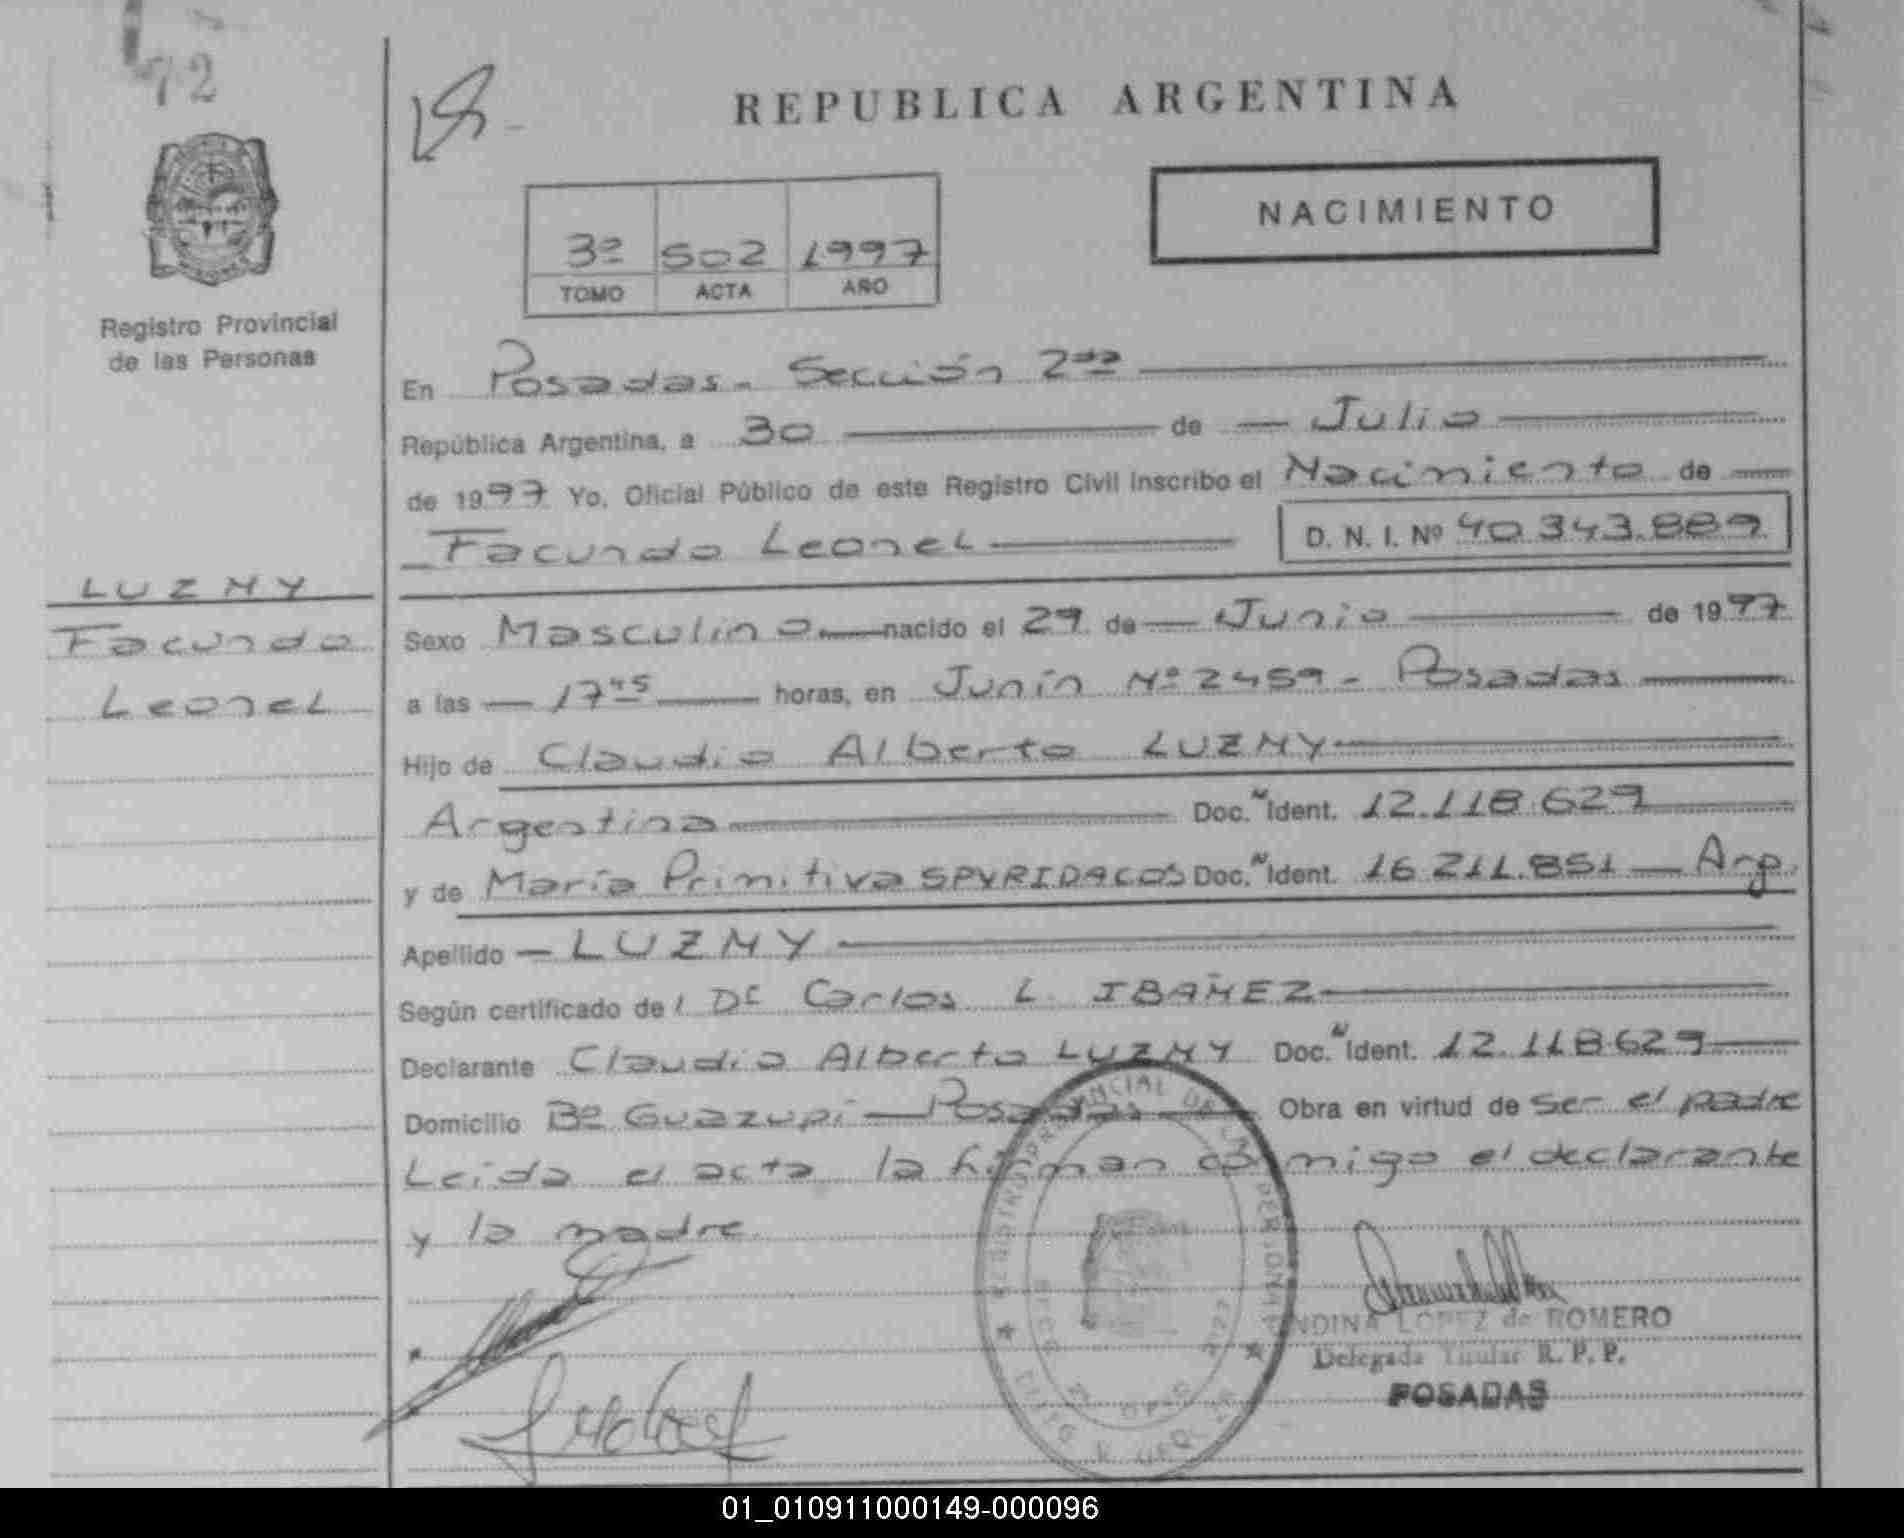 72
REPUBLICA ARGENTINA
NACIMIENTO
3º 502 1997
TOMO ACTA AÑO
Registro Provincial
de las Personas
En Posadas - Sección 2da
República Argentina, a 30 de Julio
de 1997 Yo, Oficial Público de este Registro Civil inscribo el Nacimiento de
Facundo Leonel D. N. I. Nº 40.343.889
LUZNY
Facundo
Leonel
Sexo Masculino nacido el 29 de Junio de 1997
a las 17 45 horas, en Junín Nº 2459 - Posadas
Hijo de Claudio Alberto LUZNY
Argentina Doc. N Ident. 12.118.629
y de María Primitiva SPYRIDACOS Doc. N Ident. 16.211.851 Arg.
Apellido LUZNY
Según certificado del Dr Carlos L. IBAÑEZ
Declarante Claudio Alberto LUZNY Doc. N Ident. 12.118.629
Domicilio Bº Guazupi Posadas Obra en virtud de ser el padre
Leida el acta la firman conmigo el declarante
y la madre.
REGISTRO PROVINCIAL DE LAS PERSONAS
LOPEZ de ROMERO
Delegada Titular R. P. P.
POSADAS
01_010911000149-000096